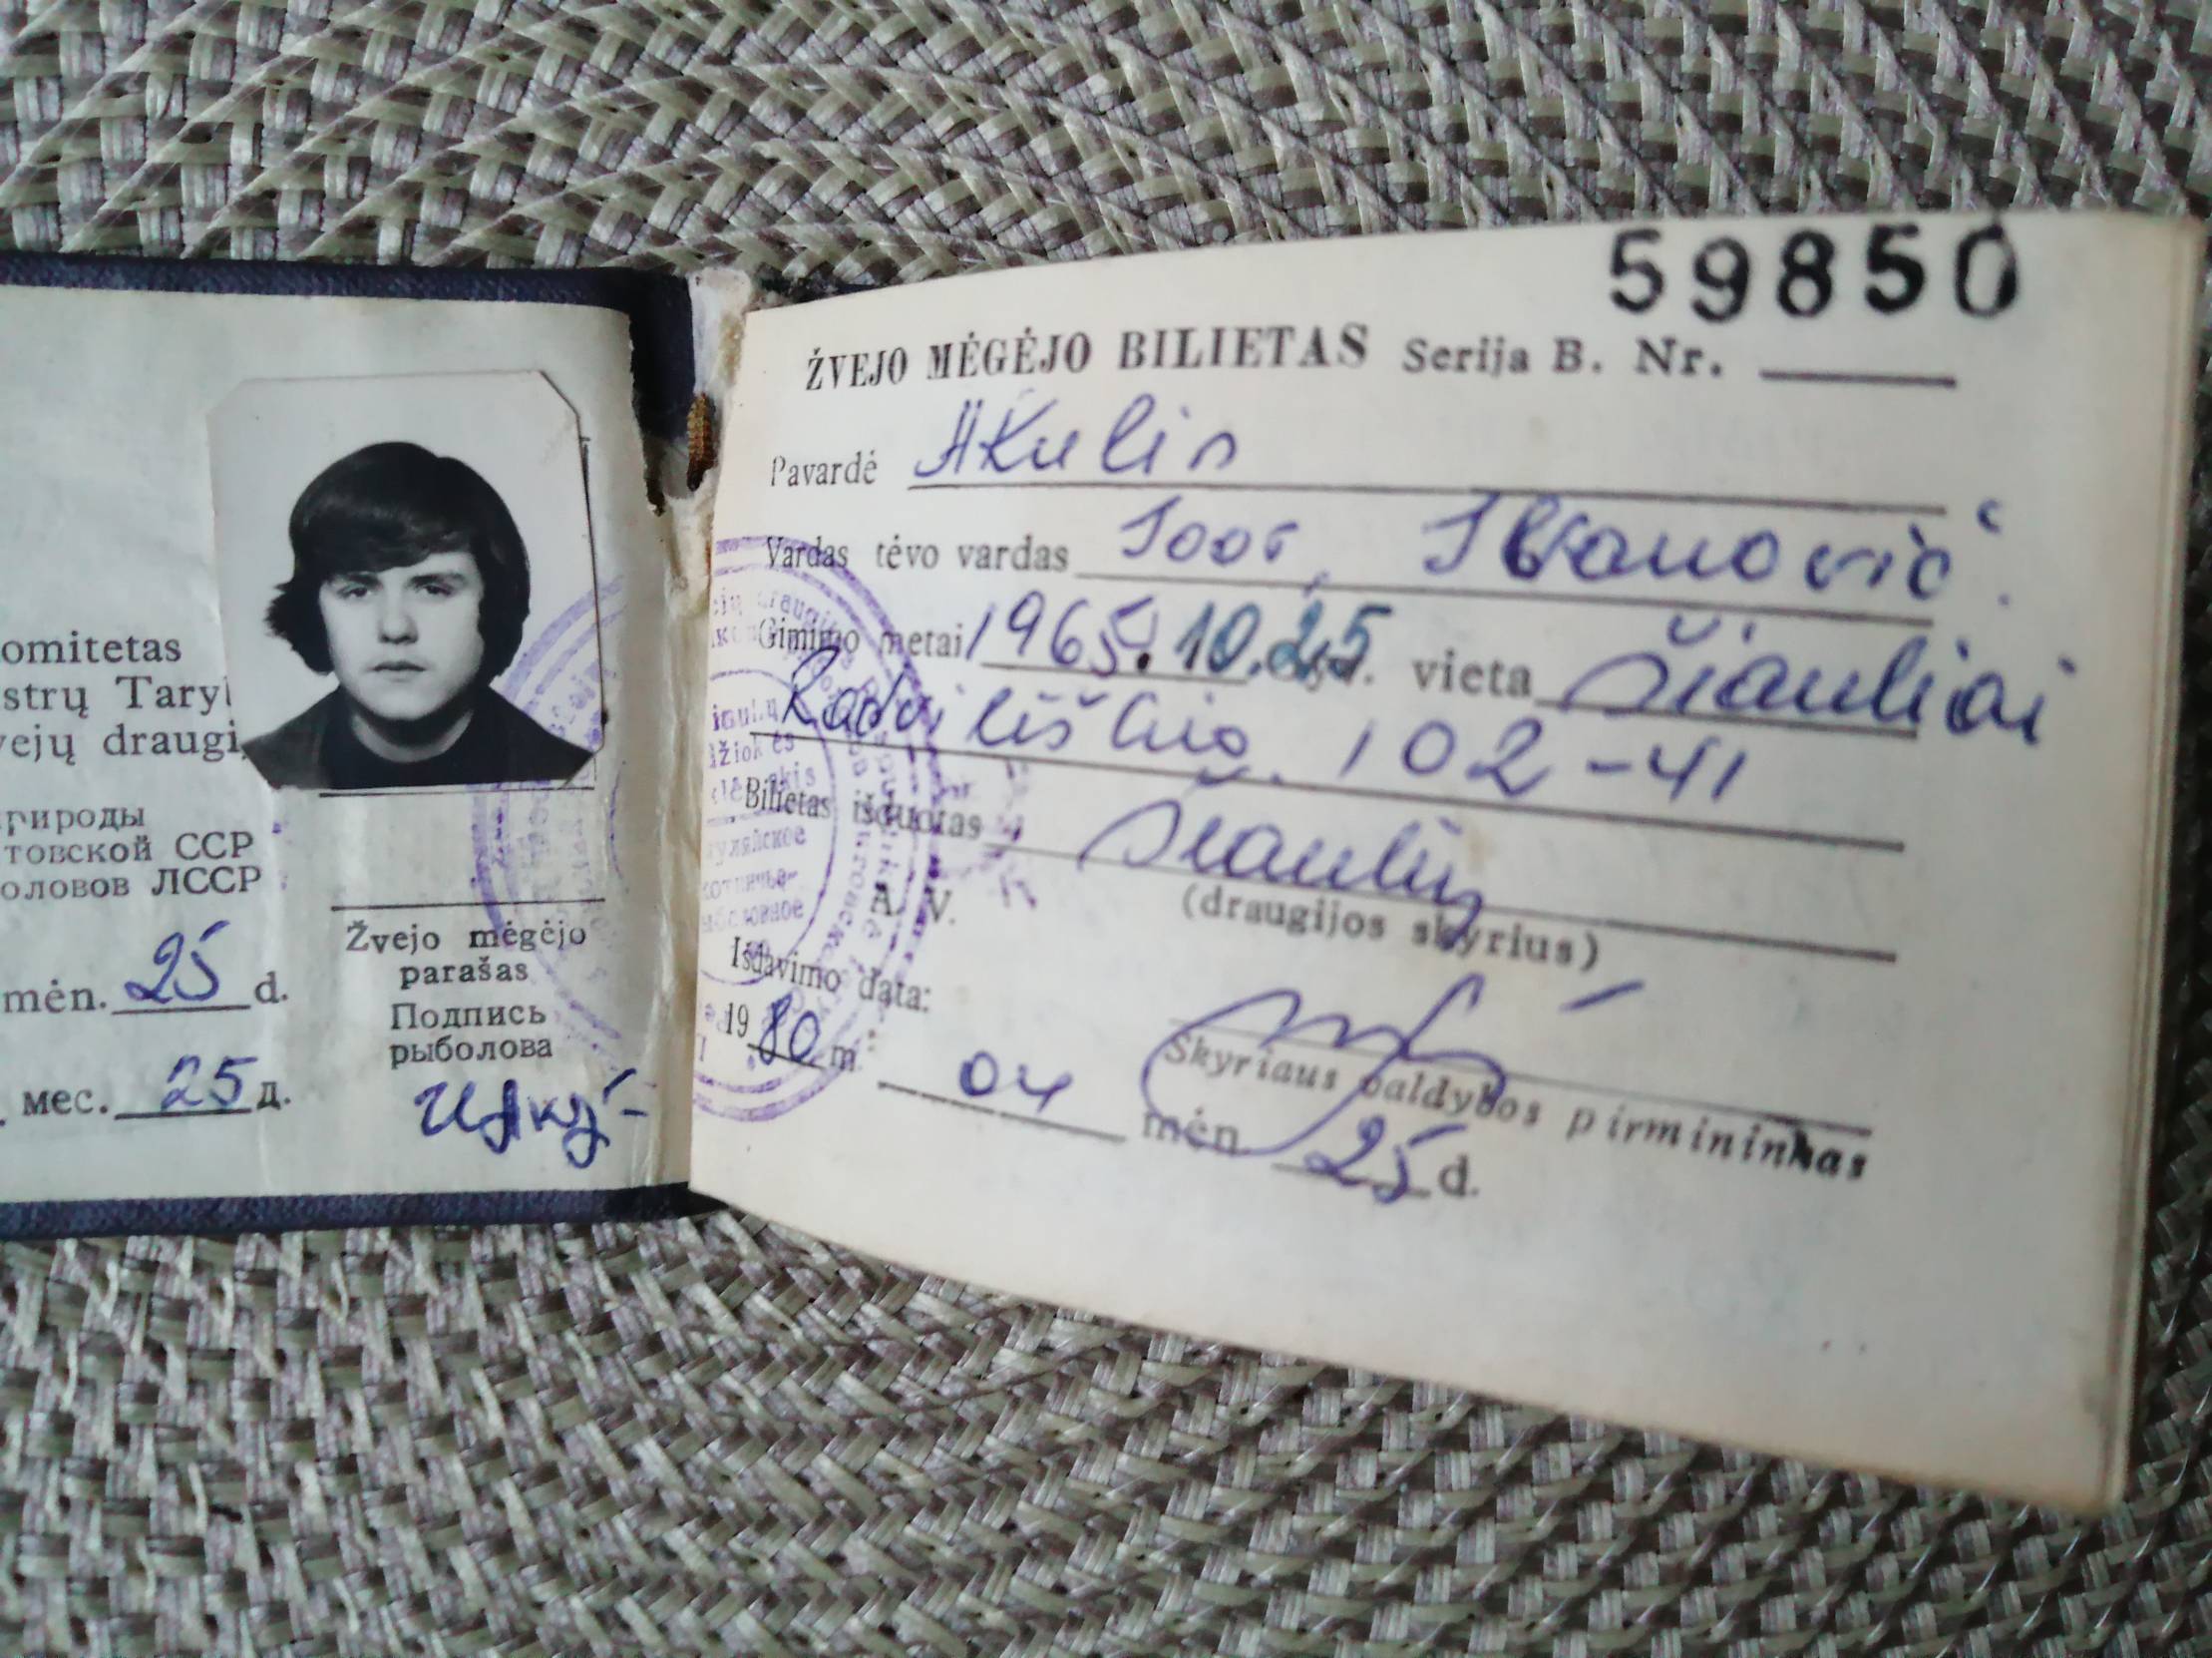 omitetas
strų Taryb
vejų draugi
природы
товской ССР
оловов ЛССР
mėn. 25 d.
мес. 25 д.
Žvejo mėgėjo
parašas
Подпись
рыболова
59850
ŽVEJO MĖGĖJO BILIETAS Serija B. Nr.
Pavardė Akulin
Vardas tėvo vardas
Gimimo metai 1965.10.25 vieta Šiauliai
Radviliškio 102-41
Bilietas išduotas Šiaulių
(draugijos skyrius)
A. V.
Išdavimo data:
1980 m. 04 mėn. 25 d.
Skyriaus valdybos pirmininkas